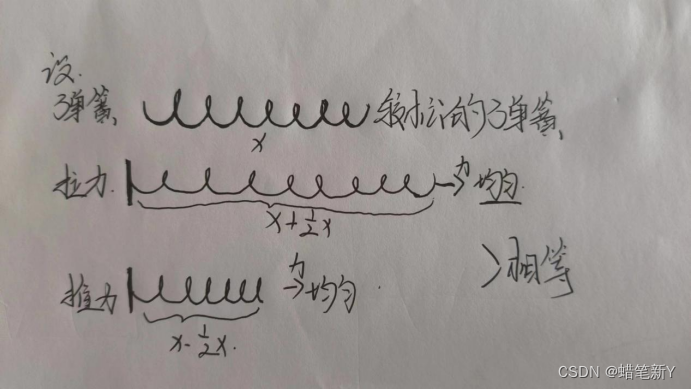 设.
弹簧、 的弹簧、
x
拉力. 力 均匀.
x+½x
>相等
推力 力 均匀.
x-½x.
CSDN @蜡笔新Y